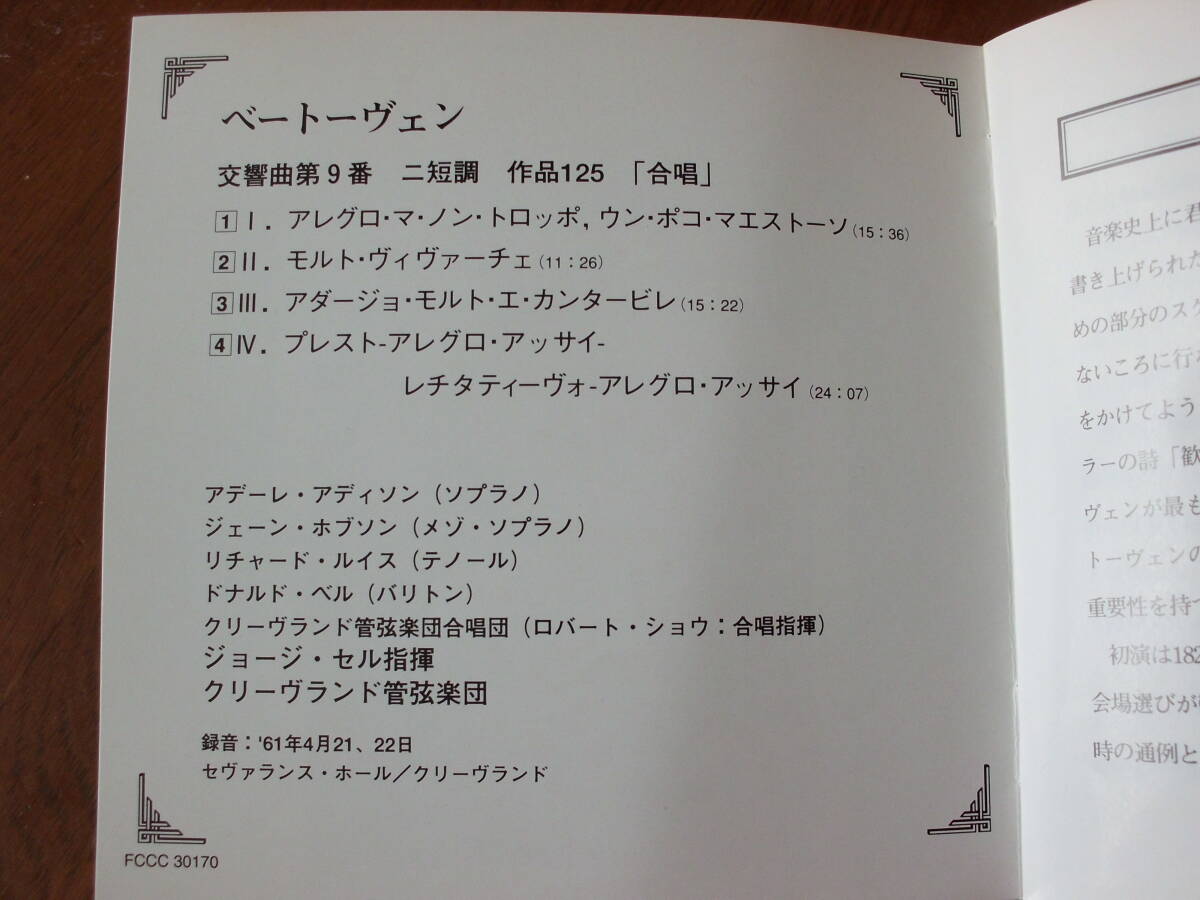 ベートーヴェン
交響曲第9番 ニ短調 作品125 「合唱」
1 I. アレグロ・マ・ノン・トロッポ, ウン・ポコ・マエストーソ (15：36)
2 II. モルト・ヴィヴァーチェ (11：26)
3 III. アダージョ・モルト・エ・カンタービレ (15：22)
4 IV. プレスト-アレグロ・アッサイ-
レチタティーヴォ-アレグロ・アッサイ (24：07)
アデーレ・アディソン（ソプラノ）
ジェーン・ホブソン（メゾ・ソプラノ）
リチャード・ルイス（テノール）
ドナルド・ベル（バリトン）
クリーヴランド管弦楽団合唱団（ロバート・ショウ：合唱指揮）
ジョージ・セル指揮
クリーヴランド管弦楽団
録音：'61年4月21、22日
セヴァランス・ホール／クリーヴランド
FCCC 30170
音楽史上に君
書き上げられた
めの部分のスケ
ないころに行
をかけてよう
ラーの詩「歓
ヴェンが最も
トーヴェンの
重要性を持つ
初演は182
会場選びが
時の通例と